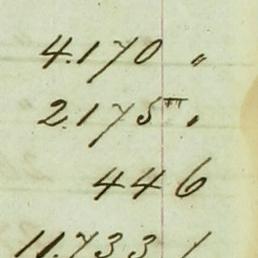 4.170 "
2.175 "
446
11.733